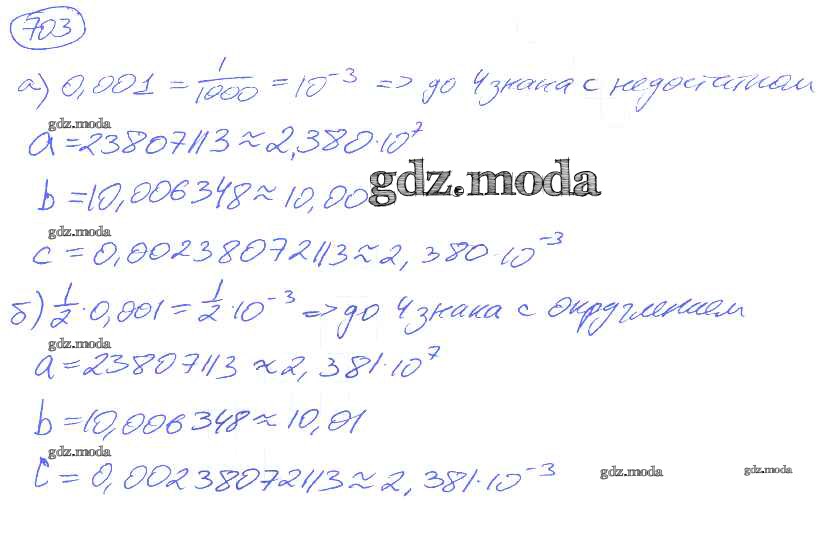 703
а) 0,001 = 1/1000 = 10⁻³ => до 4 знака с недостатком
gdz.moda
a = 23807113 ≈ 2,380·10⁷
b = 10,006348 ≈ 10,00
gdz.moda
gdz.moda
c = 0,00238072113 ≈ 2,380·10⁻³
б) 1/2·0,001 = 1/2·10⁻³ => до 4 знака с округлением
gdz.moda
a = 23807113 ≈ 2,381·10⁷
b = 10,006348 ≈ 10,01
gdz.moda
c = 0,00238072113 ≈ 2,381·10⁻³
gdz.moda
gdz.moda